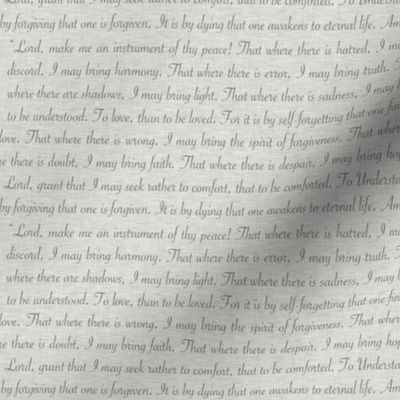 Lord, grant that I may seek rather to comfort, that to be comforted. To Understa
by forgiving that one is forgiven. It is by dying that one awakens to eternal life. Am
"Lord, make me an instrument of thy peace! That where there is hatred, I ma
discord, I may bring harmony. That where there is error, I may bring truth.
where there are shadows, I may bring light. That where there is sadness, I may
to be understood. To love, than to be loved. For it is by self-forgetting that one fin
love. That where there is wrong, I may bring the spirit of forgiveness. That wher
there is doubt, I may bring faith. That where there is despair, I may bring hop
Lord, grant that I may seek rather to comfort, that to be comforted. To Understa
by forgiving that one is forgiven. It is by dying that one awakens to eternal life. Am
"Lord, make me an instrument of thy peace! That where there is hatred, I ma
discord, I may bring harmony. That where there is error, I may bring truth.
where there are shadows, I may bring light. That where there is sadness, I may b
to be understood. To love, than to be loved. For it is by self-forgetting that one fin
love. That where there is wrong, I may bring the spirit of forgiveness. That where
there is doubt, I may bring faith. That where there is despair, I may bring hop
Lord, grant that I may seek rather to comfort, that to be comforted. To Understa
by forgiving that one is forgiven. It is by dying that one awakens to eternal life. Am